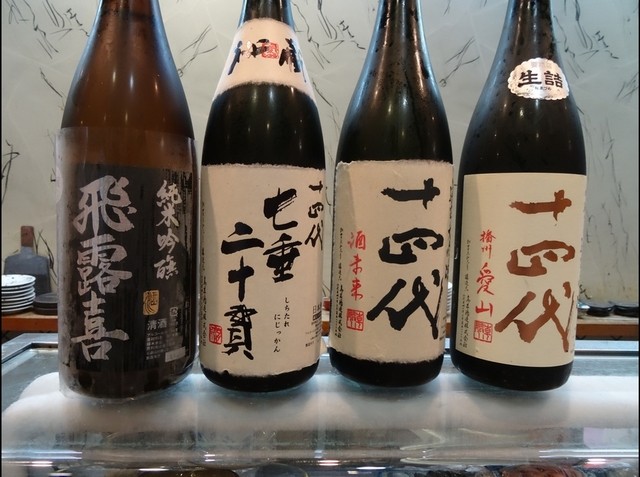 飛露喜
純米吟醸
清酒
秘蔵
十四代
七垂
二十貫
しちたれ
にじっかん
十四代
酒未来
生詰
十四代
播州
愛山